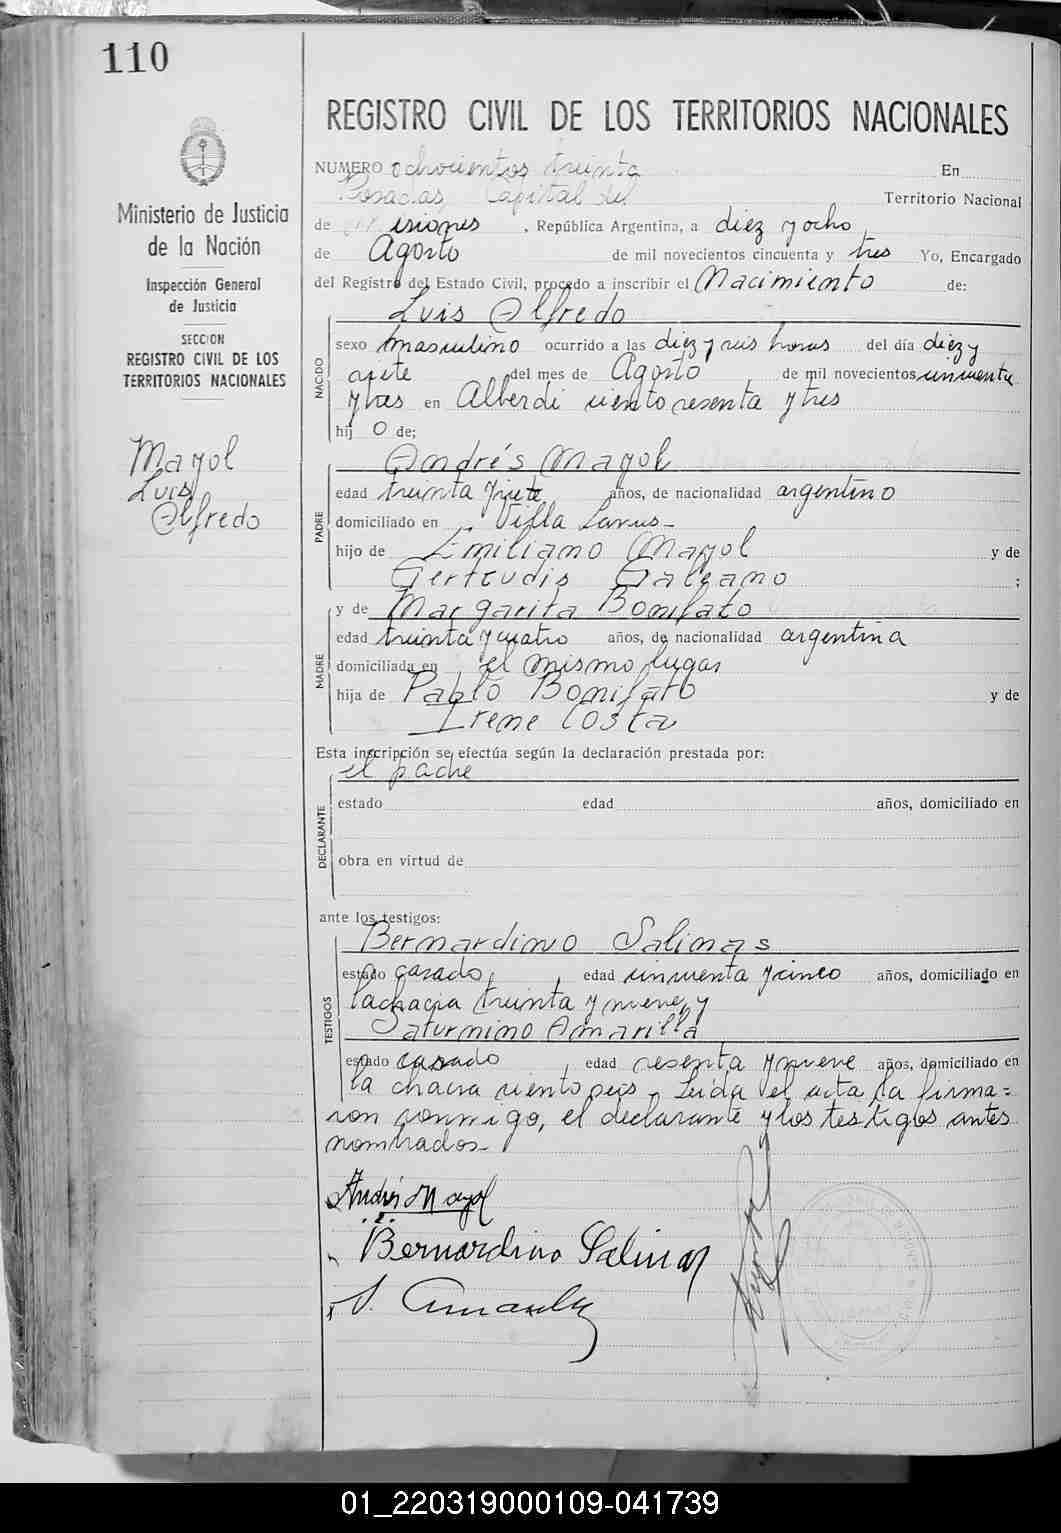 110
REGISTRO CIVIL DE LOS TERRITORIOS NACIONALES
Ministerio de Justicia
de la Nación
Inspección General
de Justicia
SECCION
REGISTRO CIVIL DE LOS
TERRITORIOS NACIONALES
Mayol
Luis
Alfredo
NUMERO ochocientos treinta En
Posadas, Capital del Territorio Nacional
de Misiones, República Argentina, a diez y ocho
de Agosto de mil novecientos cincuenta y tres Yo, Encargado
del Registro del Estado Civil, procedo a inscribir el Nacimiento de:
Luis Alfredo
NACIDO
sexo masculino ocurrido a las diez y seis horas del día diez y
siete del mes de Agosto de mil novecientos cincuenta
y tres en Alberdi ciento sesenta y tres
hij o de;
PADRE
Andrés Mayol
edad treinta y siete años, de nacionalidad argentino
domiciliado en Villa
hijo de Emiliano Mayol y de
Gertrudis Galeano ;
MADRE
y de Margarita Bonifato
edad treinta y cuatro años, de nacionalidad argentina
domiciliada en el mismo lugar
hija de Pablo Bonifato y de
Irene Costa
Esta inscripción se efectúa según la declaración prestada por:
el padre
DECLARANTE
estado edad años, domiciliado en
obra en virtud de
ante los testigos:
TESTIGOS
Bernardino Salinas
estado casado, edad cincuenta y cinco años, domiciliado en
la chacra treinta y nueve, y
Saturnino Amarilla
estado casado, edad sesenta y nueve años, domiciliado en
la chacra ciento seis. Leída el acta, la firma=
ron conmigo, el declarante y los testigos antes
nombrados-
Andrés Mayol
Bernardino Salinas
S. Amarilla
01_220319000109-041739